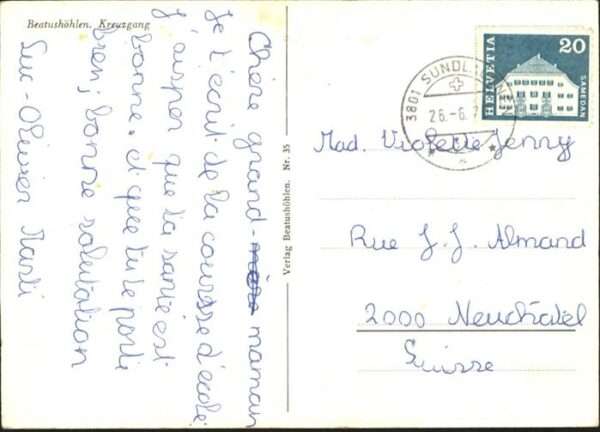 Beatushöhlen. Kreuzgang
Chère grand-mère maman
Je t'écrit de la coursse d'école
J'ausper que ta santé est
bonne. et que tu te porte
bien; bonne salutation
Luc-Olivier Marti
Verlag Beatushöhlen. Nr. 35
3801 SUNDL
26.-6.7
HELVETIA
20
SAMEDAN
Mad. Violette Jenny
Rue J.J. Almand
2000 Neuchâtel
Suisse